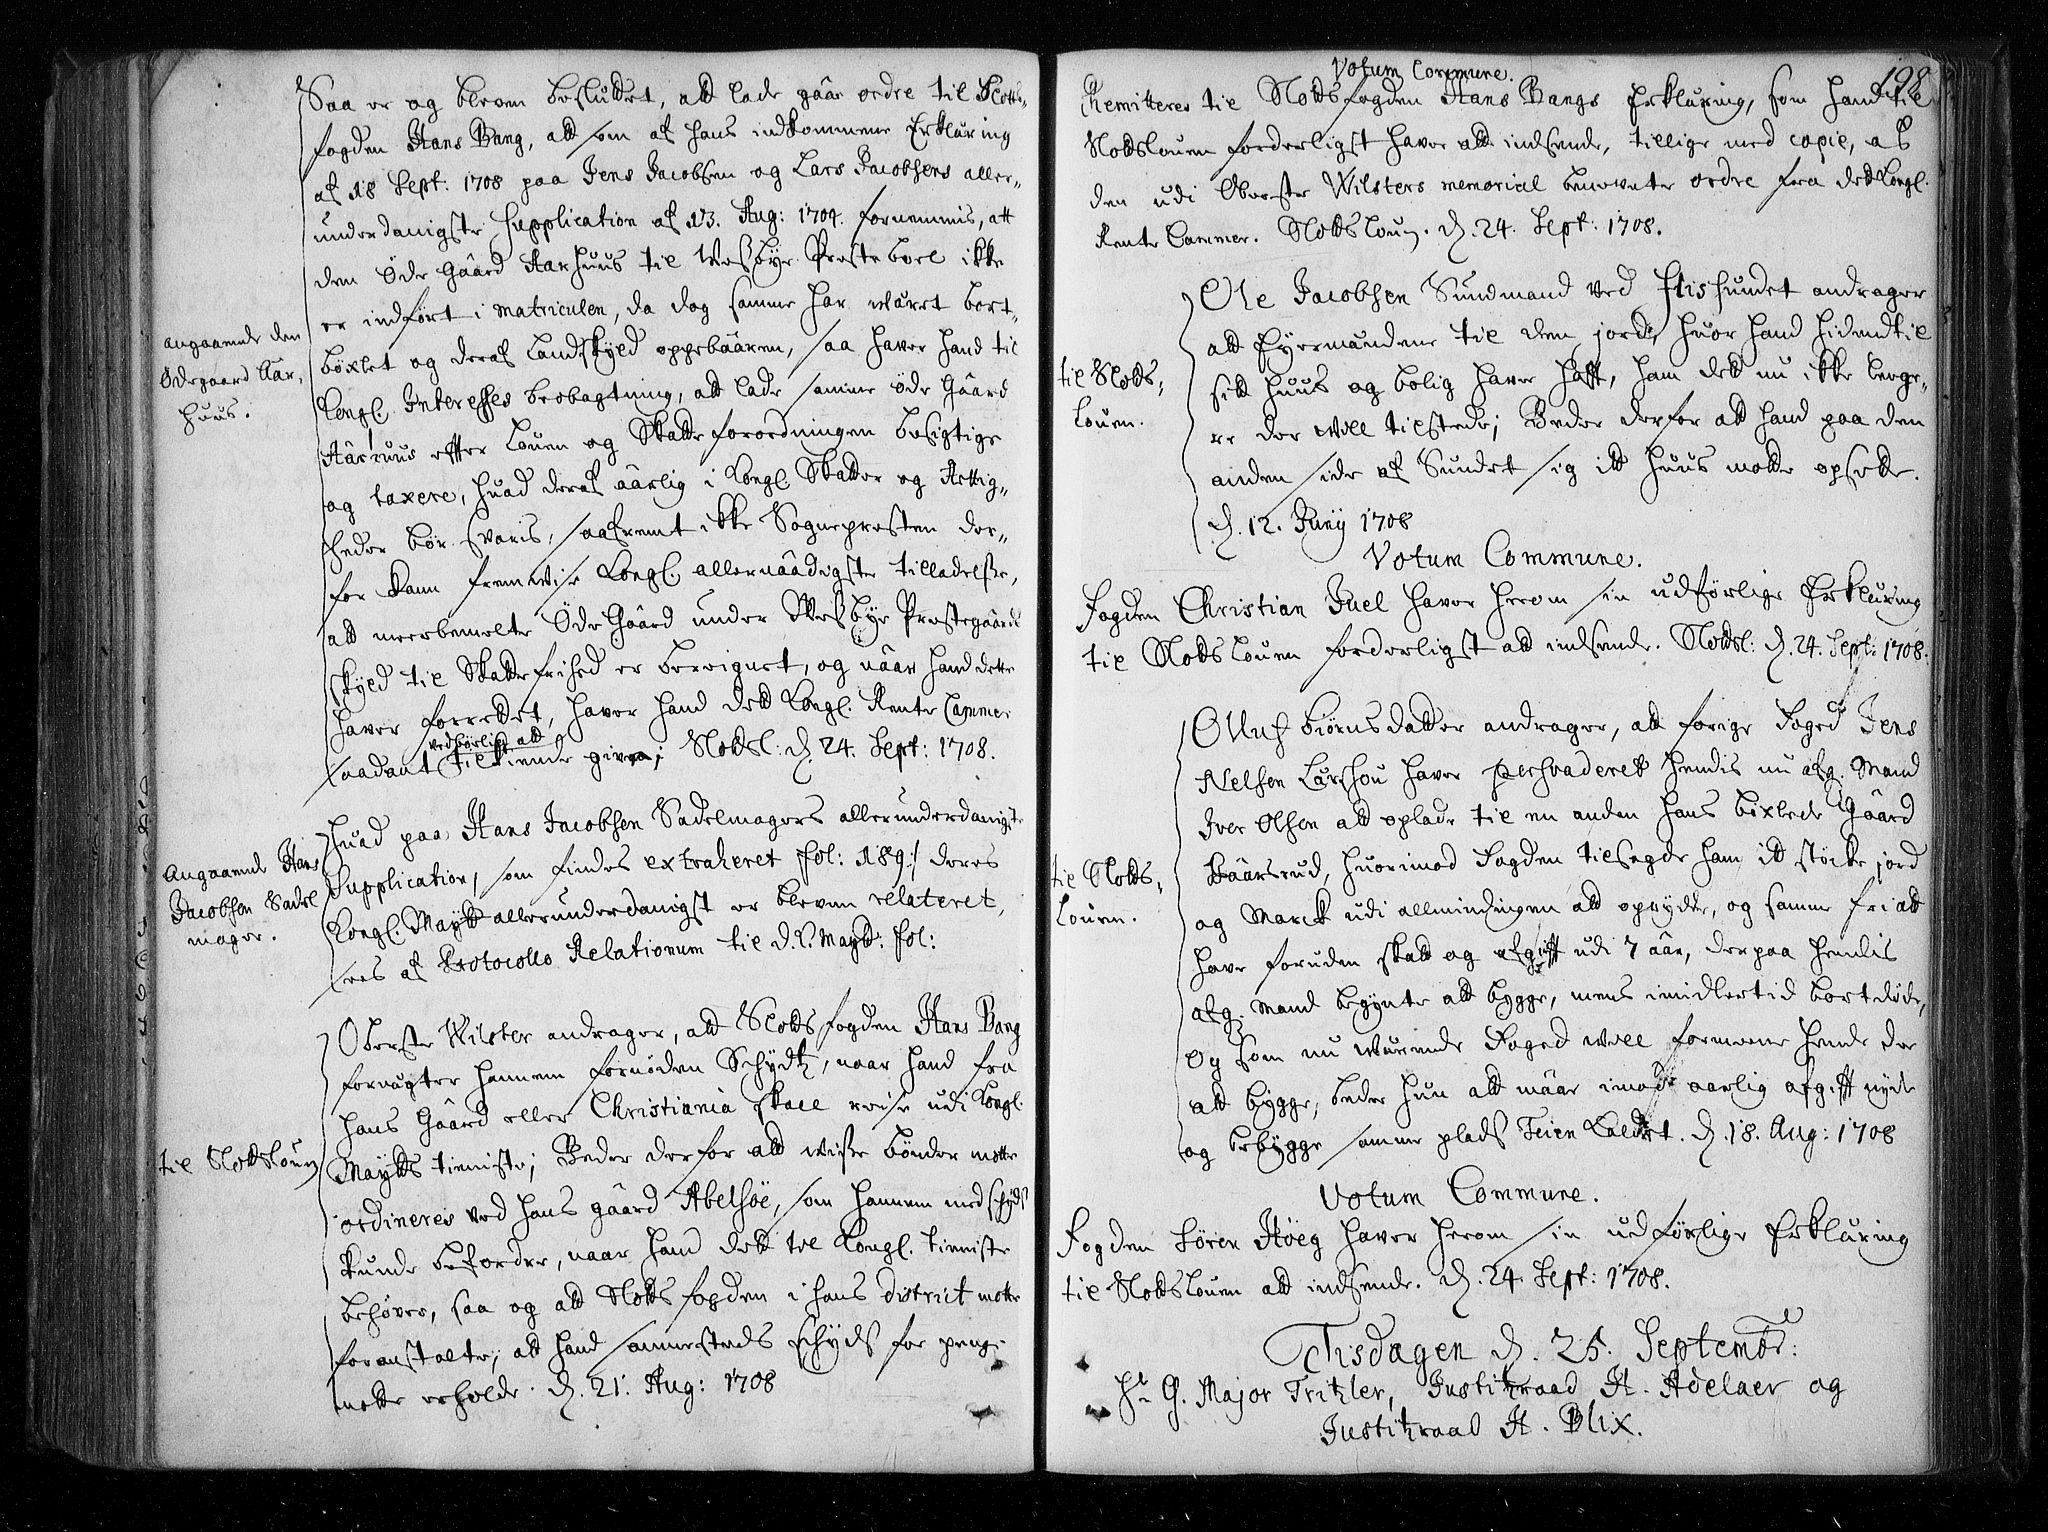 Saa er og bleven besluttet, att lade gåår ordre til Slotts-
fogden Hans Bang, att som af hans indkommene Erklæring
af 18 Sept: 1708 paa Jens Jacobsen og Lars Jacobsens aller-
underdanigste Supplication af 13. Aug: 1704. fornemmis, att
den Øde Gåård Aarhuus til Næsbye Præstebol ikke
er indført i matriculen, da dog samme har wæret bort-
böxlet og deraf Landskyld oppebååren, saa haver hand til
Kongl. Interesses beobagtning, att lade samme øde Gåård
Aarhuus effter Louen og Skatteforordningen besigtige
og taxere, huad deraf åårlig i Kongl. Skatter og Rettig-
heder bör svaris, saafremt ikke Sognepræsten der-
for kann fremwise Kongl. allernåådigste tilladelse,
att meerbemelte Øde Gåård under Næsbye Præstegåårds
skyld til Skattefrihed er bevilgnet, og nåår hand dette
haver forrettet, haver hand dett Kongl. Rente Cammer
vedbörlig att
saadant tilkiende give; Slottsl: d. 24. Sept: 1708.
angaaende den
Ødegaard Aar-
huus.
Huad paa Hans Jacobsen Sadelmagers allerunderdanigste
Supplication, som findes extraheret fol: 189: deres
Kongl. Maytt allerunderdanigst er bleven relateret,
sees af Protocollo Relationum til d. K. Maytt: fol:
Angaaende Hans
Jacobsen Sadel
mager.
Oberste Wilster andrager, att Slottsfogden Hans Bang
forvægter hannem fornöden Schydtz, naar hand fra
hans Gåård eller Christiania skall reise udi Kongl.
Maytts tieniste; Beder derfor att wisse bönder motte
ordineres ved hans gåård Abelsöe, som hannem med schyds
kunde befordre, naar hand dett til Kongl. tieniste
behöver, saa og att Slottsfogden i hans district motte
foranstalte, att hand sammesteds schyds for penge
motte erholde. d. 21. Aug: 1708
til Slottslouen
198
Votum Commune.
Remitteres til Slottsfogden Hans Bangs Erklæring, som hand til
Slottslouen forderligst haver att indsende, tillige med copie, af
den udi Oberste Wilsters memorial benevnte ordre fra dett Kongl.
Rente Cammer. Slottslouen. d. 24. Sept: 1708.
Ole Jacobsen Sundmand ved Flissundet andrager
att Eyermændene til den jord, huor hand hidendtil
sitt huus og bolig haver hafft, ham dett nu ikke længe-
re der will tilstede; Beder derfor att hand paa den
anden side af Sundet sig itt huus motte opsette.
d. 12. Junij 1708
til Slotts-
louen.
Votum Commune.
Fogden Christian Juel haver herom sin udförlige Erklæring
til Slottslouen forderligst att indsende. Slottsl: d. 24. Sept: 1708.
Olluf Biörnsdatter andrager, att forige Foged Jens
Nelsen Larshou haver persvaderet hendis nu afg. Mand
Iver Olsen att oplade til en anden hans böxlede Gåård
Båårsrud, huorimod Fogden tilsagde ham itt stöcke jord
og Marck udi allmindingen att oprydde, og samme fri att
have foruden skatt og afgifft udi 7 åår, derpaa hendis
afg. Mand begynte att bygge, mens imidlertid bortdöde,
Og som nu wærende Foged well formeene hende der
att bygge, beder hun att måår imod aarlig afgifft nyde
og bebygge samme plads Teien kaldet. d. 18. Aug: 1708
til Slotts-
louen.
Votum Commune.
Fogden Sören Höeg haver herom sin udförlige Erklæring
til Slottslouen att indsende. d. 24. Sept: 1708.
Tisdagen d. 25. Septembr:
Hr G. Major Tritzler, Justitzraad H. Adelaer og
Justitzraad H. Blix.